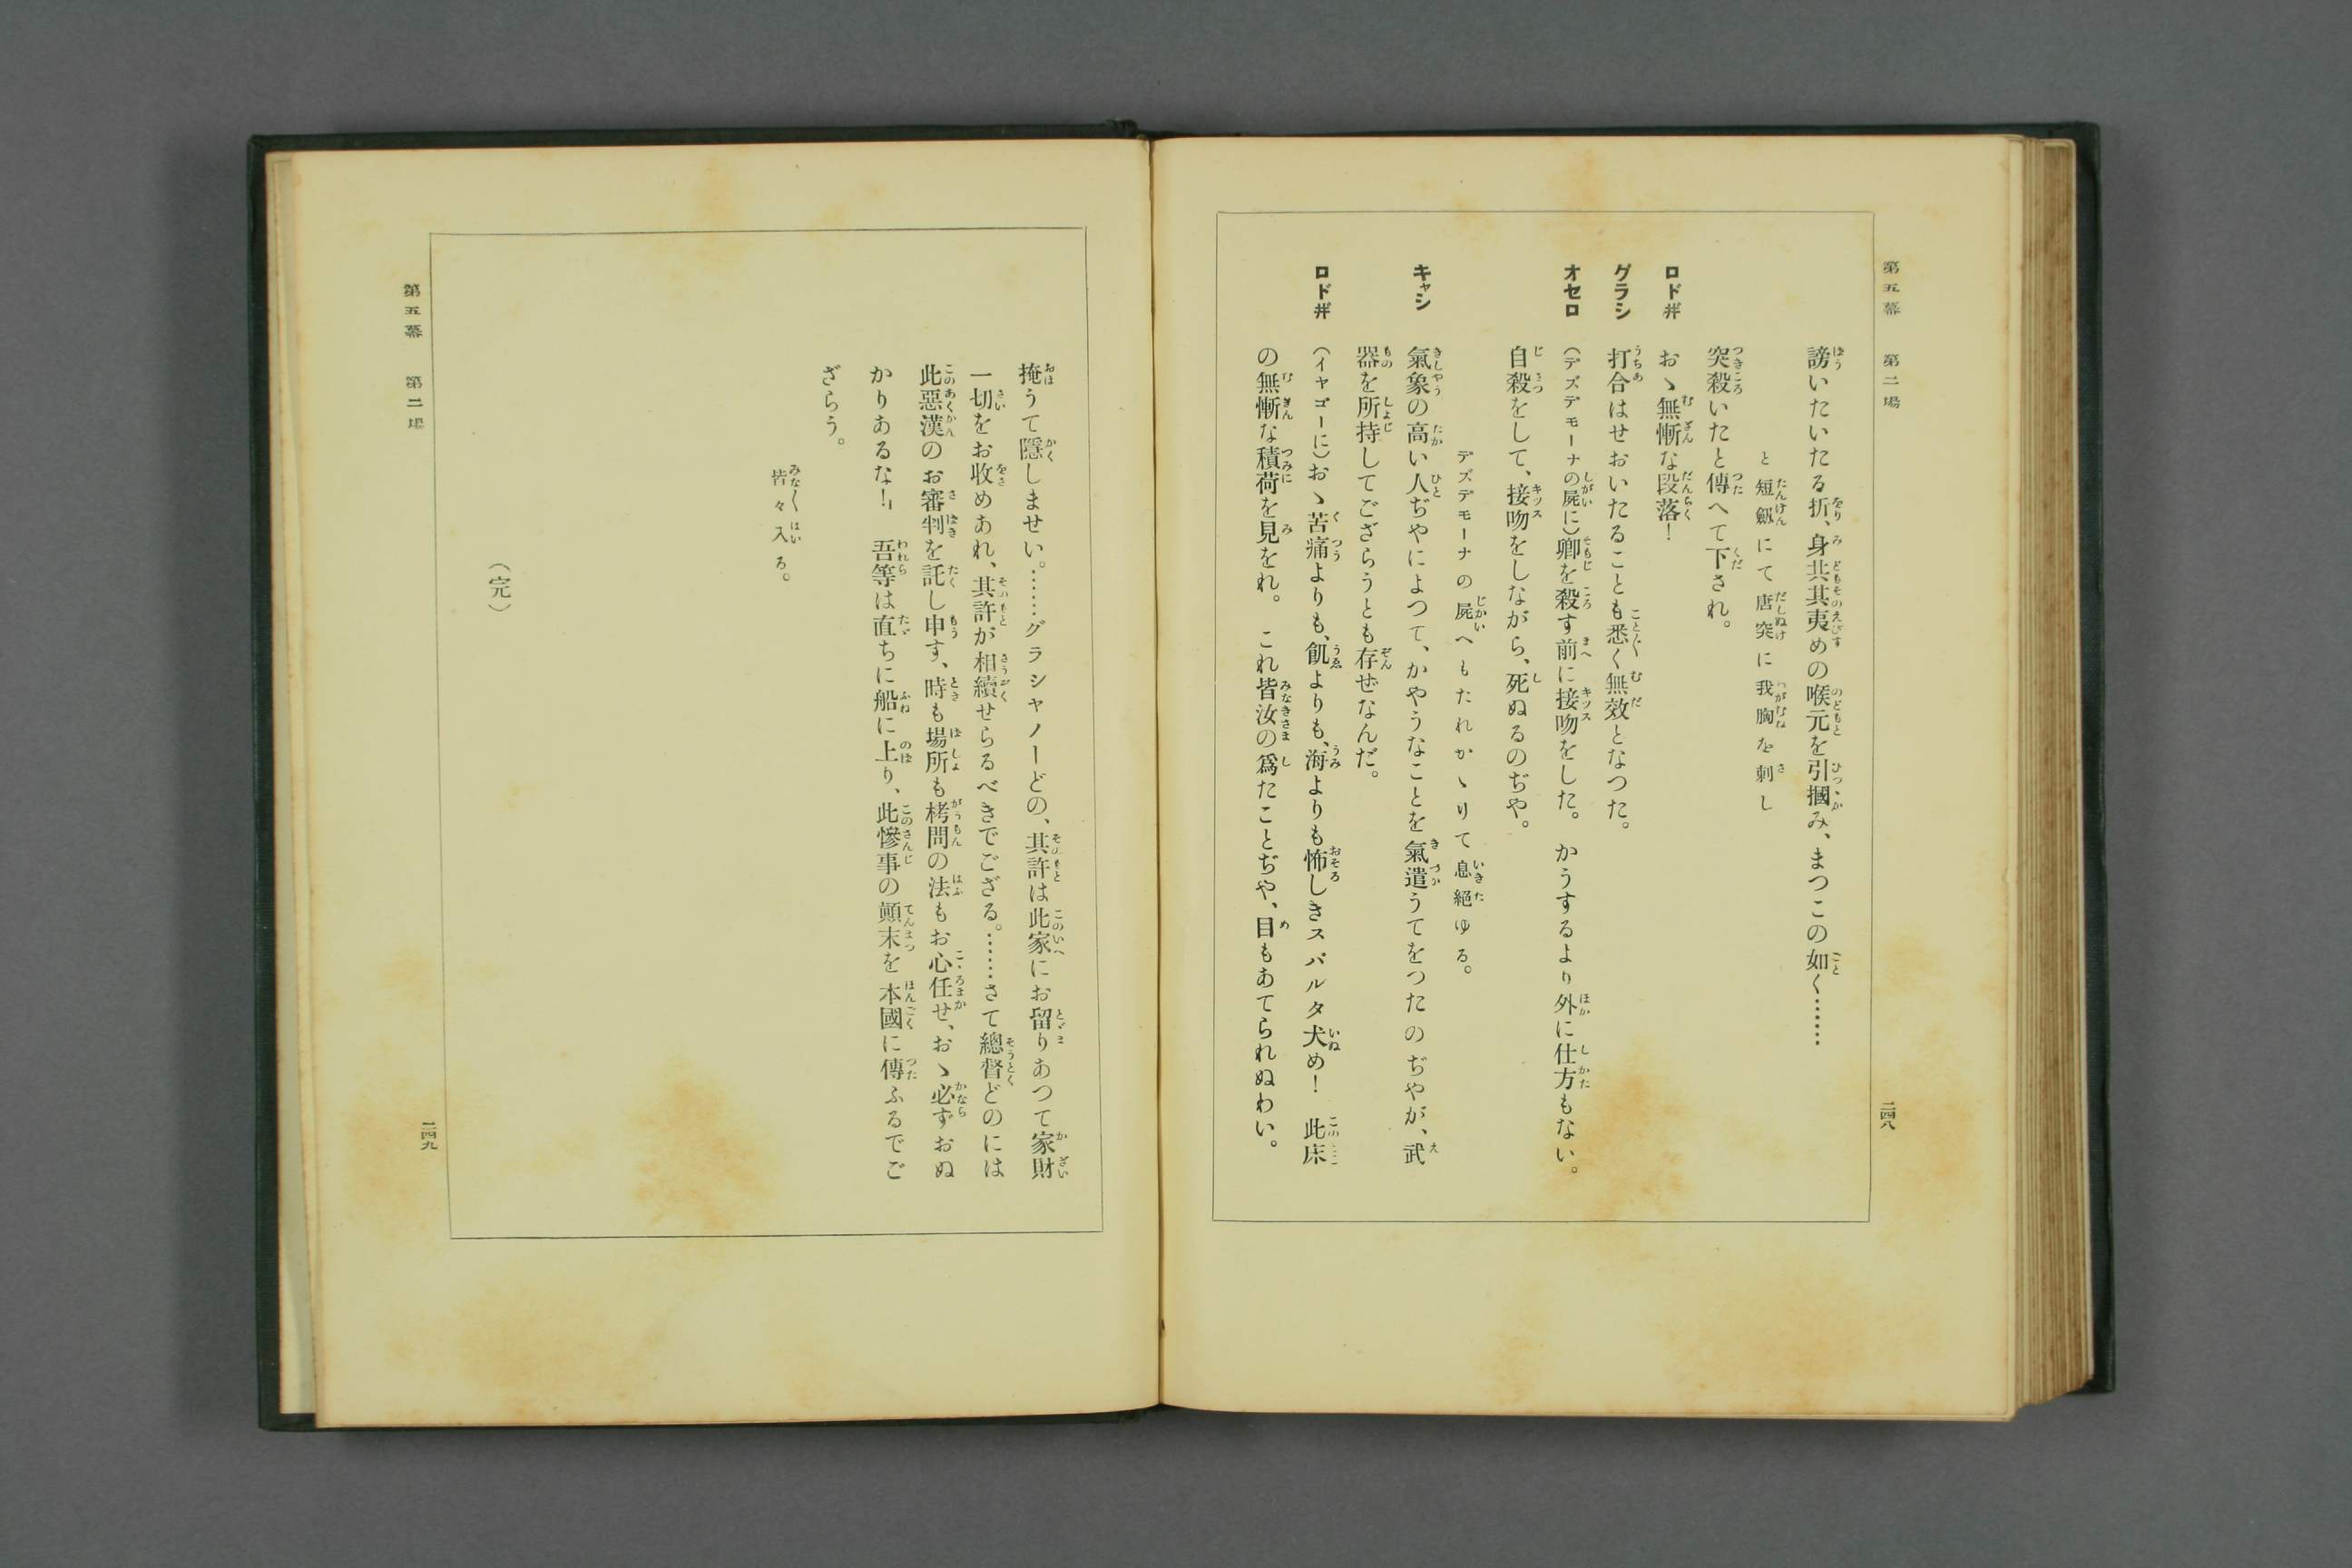 第五幕　第二場
謗いたいたる折、身共其夷めの喉元を引摑み、まつこの如く……
と短劔にて唐突に我胸を刺し
突殺いたと傳へて下され。
ロドヰ　おゝ無慚な段落！
グラシ　打合はせおいたることも悉く無效となつた。
オセロ　（デズデモーナの屍に）卿を殺す前に接吻をした。かうするより外に仕方もない。
自殺をして、接吻をしながら、死ぬるのぢや。
デズデモーナの屍へもたれかゝりて息絕ゆる。
キャシ　氣象の高い人ぢやによつて、かやうなことを氣遣うてをつたのぢやが、武
器を所持してござらうとも存ぜなんだ。
ロドヰ　（イヤゴーに）おゝ苦痛よりも、飢よりも、海よりも怖しきスパルタ犬め！　此床
の無慚な積荷を見をれ。　これ皆汝の爲たことぢや、目もあてられぬわい。
二四八
掩うて隱しませい。……グラシャノーどの、其許は此家にお留りあつて家財
一切をお收めあれ、其許が相續せらるべきでござる。……さて總督どのには
此惡漢のお審判を託し申す、時も場所も栲問の法もお心任せ、おゝ必ずおぬ
かりあるな！　吾等は直ちに船に上り、此慘事の顚末を本國に傳ふるでご
ざらう。
皆々入る。
（完）
第五幕　第二場
二四九